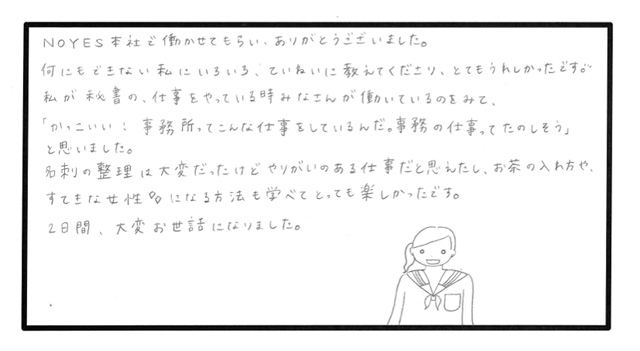 NOYES本社で働かせてもらい、ありがとうございました。
何にもできない私にいろいろ、ていねいに教えてくださり、とてもうれしかったです。
私が秘書の、仕事をやっている時みなさんが働いているのをみて、
「かっこいい！事務所ってこんな仕事をしているんだ。事務の仕事ってたのしそう」
と思いました。
名刺の整理は大変だったけどやりがいのある仕事だと思えたし、お茶の入れ方や、
すてきな女性になる方法も学べてとっても楽しかったです。
2日間、大変お世話になりました。